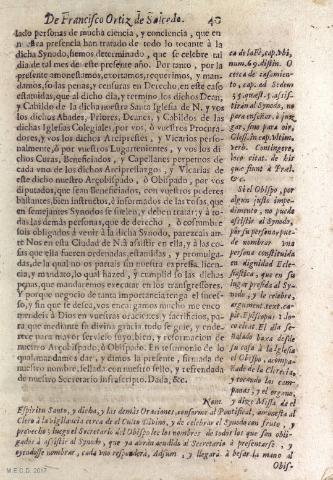 De Francisco Ortiz de Salcedo. 40
lado personas de mucha ciencia, y conciencia, que en
nuestra presencia han tratado de todo lo tocante à la
dicha Synodo, hemos determinado, que se celebre tal
dia de tal mes de este presente año. Por tanto, por la
presente amonestamos, exortamos, requerimos, y man-
damos, so las penas, y censuras en Derecho, en este caso
estatuidas, que al dicho dia, y termino, los dichos Dean,
y Cabildo de la dicha nuestra Santa Iglesia de N. y vos
los dichos Abades, Priores, Deanes, y Cabildos de las
dichas Iglesias Colegiales, por vos, ò vuestros Procura-
dores, y vos los dichos Arciprestes, y Vicarios perso-
nalmente, ò por vuestros Lugartenientes, y vos los di-
chos Curas, Beneficiados, y Capellanes perpetuos de
cada uno de los dichos Arciprestazgos, y Vicarias de
este dicho nuestro Arçobispado, ò Obispado, por vos
diputados, que sean Beneficiados, con vuestros poderes
bastantes, bien instructos, è informados de las cosas, que
en semejantes Synodos se suelen, y deben tratar; y à to-
das las demàs personas, que de derecho, ò costumbre
sois obligados à venir à la dicha Synodo, parezcais an-
te Nos en esta Ciudad de N. à assistir en ella, y à las co-
sas que ella fueren ordenadas, estatuidas, y promulga-
das, de la qual no os partais sin nuestra expressa licen-
cia, y mandato, lo qual hazed, y cumplid so las dichas
penas, que mandarèmos executar en los transgressores.
Y porque negocio de tanta importancia tenga el suces-
so, y fin que se desea, vos encargamos mucho nos enco-
mendeis à Dios en vuestras oraciones, y sacrificios, pa-
ra que mediante su divina gracia todo se guie, y ende-
rece para mayor servicio suyo, bien, y reformacion de
nuestro Arçobispado, ò Obispado. En testimonio de lo
qual mandamos dar, y dimos la presente, firmada de
nuestro nombre, sellada con nuestro sello, y refrendada
de nuestro Secretario infrascripto. Dada, &c.
Si el Obispo, por
algun justo impe-
dimento, no puede
assistir al Synodo,
por su persona, pue-
de nombrar una
persona constituida
en dignidad Ecle-
siastica, que en su
lugar presida al Sy-
nodo, y le celebre,
Obispo, acompaña-
do de la Clerecia,
y tocando las cam-
panas, y el organo,
Nota. y dize Missa de el
Espiritu Santo, y dicha, y las demàs Oraciones, conforme al Pontifical, amonesta al
Clero à la vigilancia cerca de el Culto Divino, y de celebrar el Synodo con fruto, y
provecho; luego el Secretario del Obispo lee los nombres de todos los que son obli-
gados à assistir al Synodo, que ya avràn acudido al Secretario à presentarse, y
oyendose nombrar, cada uno responderà, Adsum, y llegarà à besar la mano al
Obis-
M.E.C.D. 2017